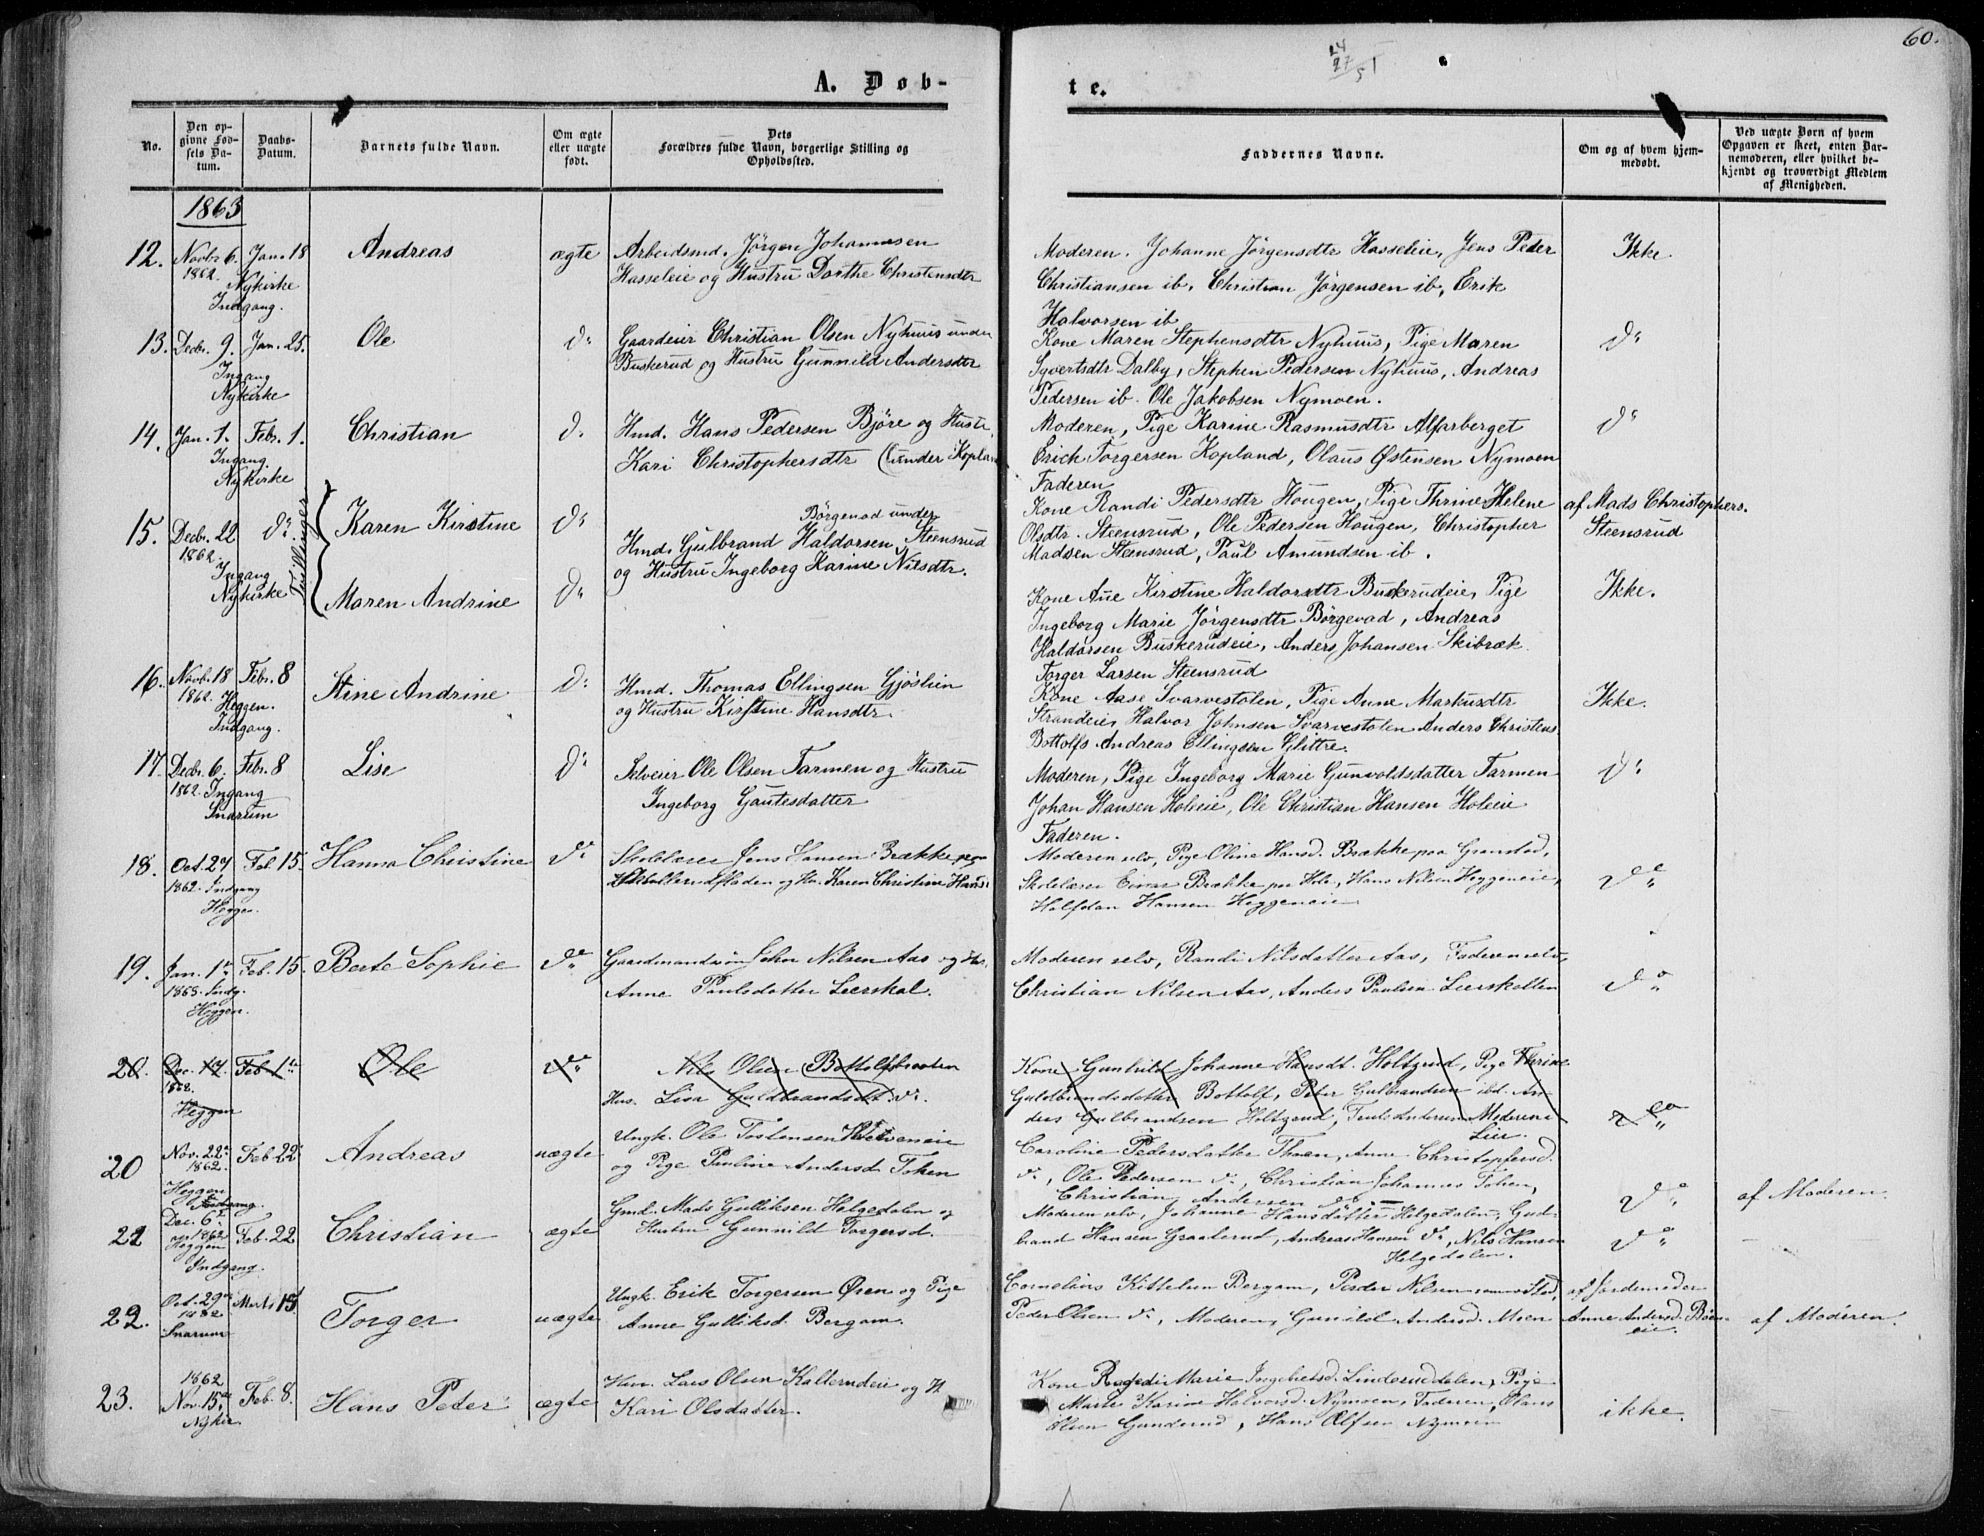 60.
24
27
51
A. Døb-
te.
No.
Den op-
givne Fød-
sels Da-
tum.
Daabs-
Datum.
Barnets fulde Navn.
Om ægte
eller uægte
født.
Dets
Forældres fulde Navn, borgerlige Stilling og
Opholdssted.
Faddernes Navne.
Om og af hvem hjem-
medøbt.
Ved uægte Børn af hvem
Opgaven er skeet, enten Bar-
nemoderen, eller hvilket be-
kjendt og troværdigt Medlem
af Menigheden.
1863
12. Novbr 6. Jan. 18 Andreas ægte Arbeidsmd. Jörgen Johannesen
1862. Nykirke
Indgang.
Hasseleie og Hustru Dorthe Christensdtr
Moderen. Johanne Jörgensdtr Hasseleie, Jens Peder
Christiansen ib, Christian Jörgensen ib, Erik
Halvorsen ib
Ikke
13. Decbr. 9. Jan. 25. Ole do Gaardeier Christian Olsen Nyhuus under
Ingang
Nykirke
Buskerud og Hustru Gunnild Andersdtr
Kone Maren Stephensdtr Nyhuus, Pige Maren
Syvertsdtr Dalby, Stephen Pedersen Nyhuus, Andreas
Pedersen ib. Ole Jakobsen Nymoen.
do
14. Jan. 1. Febr. 1. Christian do Hmd. Hans Pedersen Björe og Hustr.
Ingang
Nykirke
Kari Christophersdtr (under Kopland
Moderen, Pige Karine Rasmusdtr Alfarberget
Erich Torgersen Kopland, Olaus Östensen Nymoen
Faderen
do
15. Decbr. 22 do Tvillinger Karen Kirstine do
1862.
Ingang
Nykirke
Maren Andrine do
Börgevad under
Hmd. Gulbrand Haldorsen Steensrud
og Hustru Ingeborg Karine Nilsdtr.
Kone Randi Pedersdtr Hougen, Pige Thrine Helene
Olsdtr. Steensrud, Ole Pedersen Hougen, Christopher
Madsen Steensrud, Paul Amundsen ib.
af Mads Christophers.
Steensrud
Kone Ane Kirstine Haldorsdtr Buskerudeie, Pige
Ingeborg Marie Jörgensdtr Börgevad, Andreas
Haldorsen Buskerudeie, Anders Johansen Skibræk
Torger Larsen Steensrud
Ikke.
16. Novb. 18 Febr. 8 Stine Andrine do Hmd. Thomas Ellingsen Gjöslien
1862. Heggen.
Indgang.
og Hustru Kirstine Hansdtr.
Kone Aase Svarvestolen, Pige Anne Markusdtr
Strandeie, Halvor Johnsen Svarvestolen Anders Christens
Bottolfs Andreas Ellingsen Glittre.
Ikke.
17. Decbr. 6. Febr. 8 Lise do Selveier Ole Olsen Tarmen og Hustru
1862. Ingang
Snarum
Ingeborg Gautesdatter
Moderen, Pige Ingeborg Marie Gunvoldsdatter Tarmen
Johan Hansen Holeie, Ole Christian Hansen Holeie
Faderen.
do
18. Oct. 27 Feb 15. Hanna Christine do Skolelærer Jens Hansen Brække paa
1862. Indgang
Heggen.
og Hu. Karen Christine Hans.
Moderen selv, Pige Oline Hansd. Brække paa Grønstad,
Skolelærer Einar Brække paa Hole, Hans Nilsen Heggeneie,
Halfdan Hansen Heggeneie
do
19. Jan. 1 Feb. 15. Berte Sophie do Gaardmandssøn John Nilsen Aas og Hu.
1863. Indg.
Heggen.
Anne Paulsdatter Leerskal.
Moderen selv, Randi Nilsdatter Aas, Faderen selv,
Christian Nilsen Aas, Anders Paulsen Leerskallen
do
20. Dec. 17. Feb 1 Ole do Nils Olsen Bottolfbraaten
1862.
Heggen
Hus. Lisa Guldbrandsdt. do
Kone Gunhild Johanne Hansdt. Holtgrud, Pige Thrine
Guldbrandsdatter Bottolf, Peter Gulbrandsen ibd. An-
ders Gulbrandsen Holtgrud, Truls Andersen Moderens
Lier.
do
20 Nov. 22 Feb 22 Andreas uægte Ungk. Ole Tostensen
1862.
Heggen
Indgang.
og Pige Pauline Andersd. Token
Caroline Pedersdatter Thoen, Anne Christophersd.
do, Ole Pedersen do, Christian Johannes Token,
Christian Andersen do
do
af Moderen.
21 Dec. 6 Feb. 22 Christian ægte Gmd. Mads Gulliksen Helgedalen og
1862
Heggen
Indgang.
Hustru Gunnild Torgersd.
Moderen selv, Johanne Hansdatter Helgedalen, Gud-
brand Hansen Graaterud, Andreas Hansen do, Nils Hansen
Helgedalen.
do
22. Oct. 29 Marts 15 Torger uægte Ungk. Erik Torgersen Øren og Pige
1862
Snarum
Anne Gulliksd. Bergam.
Cornelius Kittelsen Bergam, Peder Nilsen samestod,
Peder Olsen do, Moderen, Gunild Andersd. Moen
af Jordemoder
Anne Andersd. Böen-
eie.
af Moderen.
23. 1862 Nov. 15 Feb. 8. Hans Peter ægte Hmd. Lars Olsen Kalterudeie og H.
Nykir.
Kari Olsdatter.
Kone Ragndi Marie Ingebretsd. Linderuddalen, Pige
Marte Karine Halvorsd. Nymoen, Faderen, Olaus
Olsen Gunderud, Hans Olsen Nymoen
ikke.